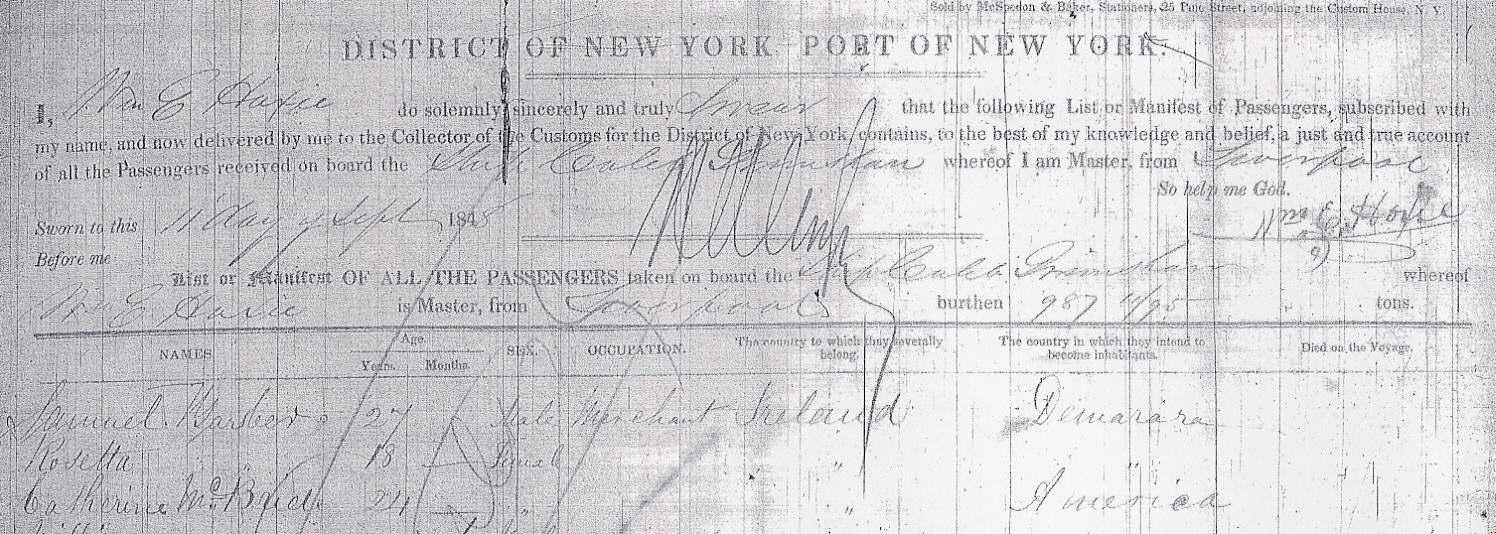 Sold by McSpedon & Baker, Stationers, 25 Pine Street, adjoining the Custom House, N. Y.
DISTRICT OF NEW YORK PORT OF NEW YORK.
I, Wm E Hoxie do solemnly, sincerely and truly Swear that the following List or Manifest of Passengers, subscribed with
my name, and now delivered by me to the Collector of the Customs for the District of New York, contains, to the best of my knowledge and belief, a just and true account
of all the Passengers received on board the Ship Caleb Grimshaw whereof I am Master, from Liverpool
So help me God.
Sworn to this 11 day of Sept 1848 Wm E. Hoxie
Before me
List or Manifest OF ALL THE PASSENGERS taken on board the Ship Caleb Grimshaw whereof
Wm E Hoxie is Master, from Liverpool burthen 987 11/95 tons.
NAMES Age. Years. Months. SEX. OCCUPATION. The country to which they severally belong. The country in which they intend to become inhabitants. Died on the Voyage.
Samuel Barber 27 Male Merchant Ireland Demarara
Rosetta " 18 Female " "
Catherine McBride 24 " " America